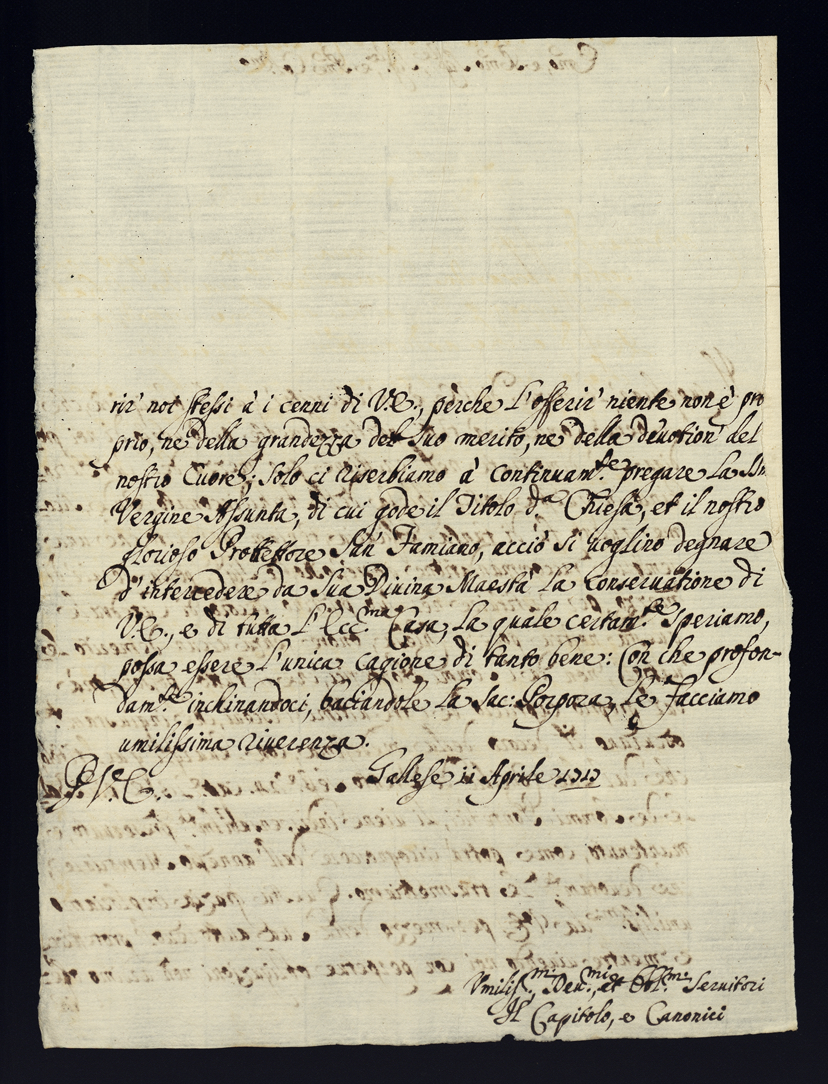 rir' noi stessi à i cenni di V.E., perche l'offerir' niente non è pro
prio, ne della grandezza del suo merito, ne della devotion' del
nostro Cuore; Solo ci riserbiamo à continuam.te pregare la
Vergine Assunta, di cui gode il Titolo d.a Chiesa, et il nostro
glorioso Protettore San' Famiano, acciò si voglino degnare
d'intercedere da Sua Divina Maestà la conservatione di
V.E., e di tutta l'Ecc.ma Casa, la quale certam.te speriamo,
possa essere l'unica cagione di tanto bene: Con che profon-
dam.te inchinandoci, baciandole la Sac: Porpora, Le facciamo
umilissima riverenza.
Gallese 11 Aprile 1717
Umiliss.mi, Dev.mi, et Obl.mi Servitori
Il Capitolo, e Canonici